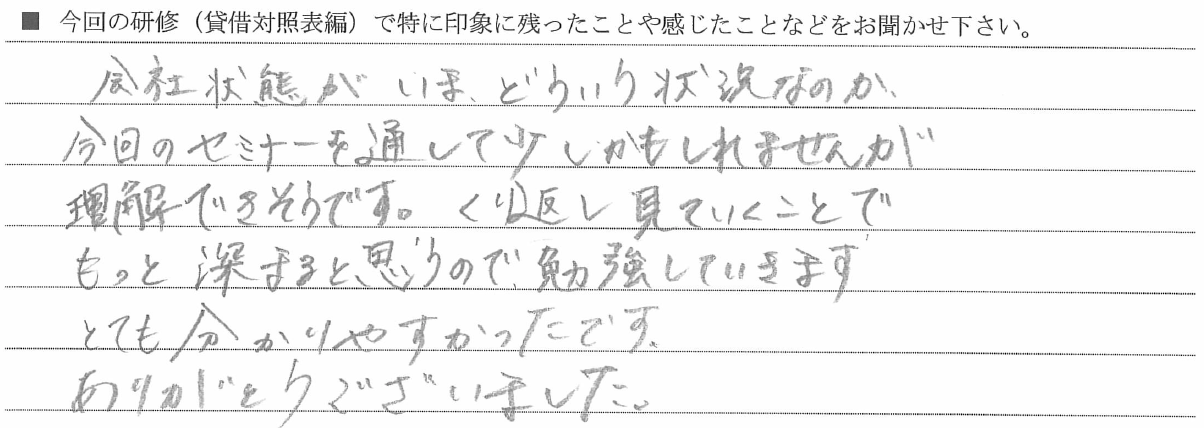 ■ 今回の研修（貸借対照表編）で特に印象に残ったことや感じたことなどをお聞かせ下さい。
会社状態が いま、どういう状況なのか、
今回のセミナーを通して少しかもしれませんが
理解できそうです。くり返し見ていくことで
もっと深まると思うので、勉強していきます
とても分かりやすかったです。
ありがとうございました。